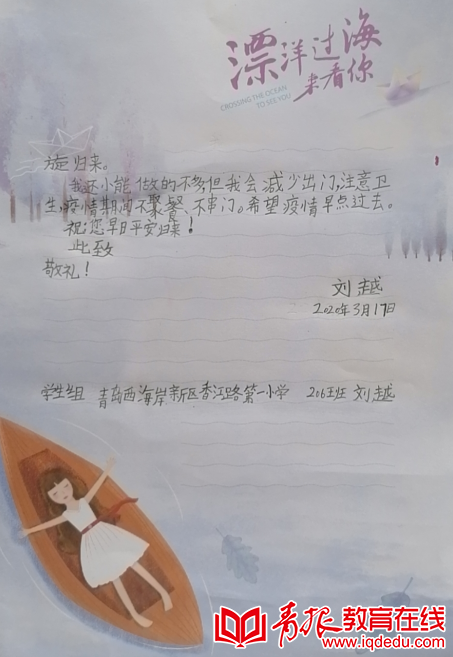 漂洋过海
来看你
CROSSING THE OCEAN
TO SEE YOU
旋归来。
我还小能做的不多,但我会减少出门,注意卫
生,疫情期间不聚餐、不串门。希望疫情早点过去。
祝:您早日平安归来!
此致
敬礼!
刘越
2020年3月17日
学生组 青岛西海岸新区香江路第一小学 206班 刘越
青报教育在线
www.iqdedu.com